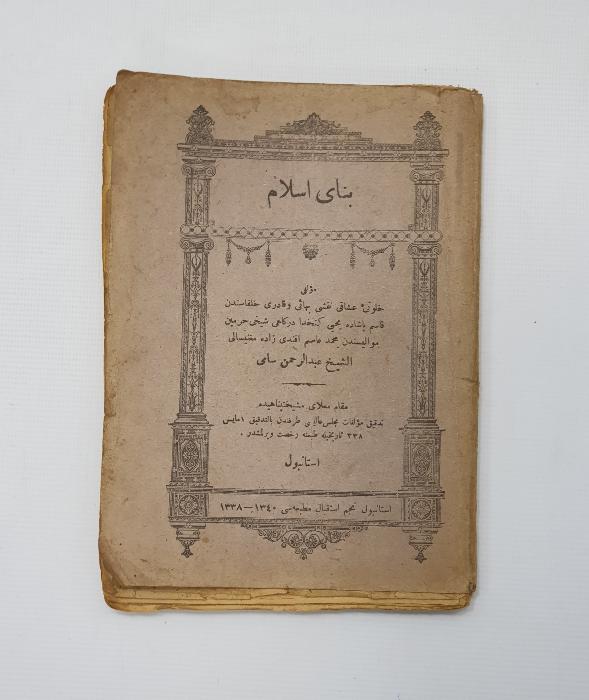 بنای اسلام
مؤلفی
خلوتیٔ عشاقی نقشی بهائی و قادری خلفاسندن
قاسم پاشاده یحیی کتخدا درکاهی شیخی حرمین
موالیسندن محمد عاصم افندی زاده مغنیسالی
الشیخ عبدالرحمن سامی
مقام معلای مشیختپناهیده
تدقیق مؤلفات مجلس عالیسی طرفندن بالتدقیق ١ مایس
٣٣٨ تاریخنده طبعنه رخصت ویرلمشدر .
استانبول
استانبول نجم استقبال مطبعه‌سی ١٣٤٠—١٣٣٨